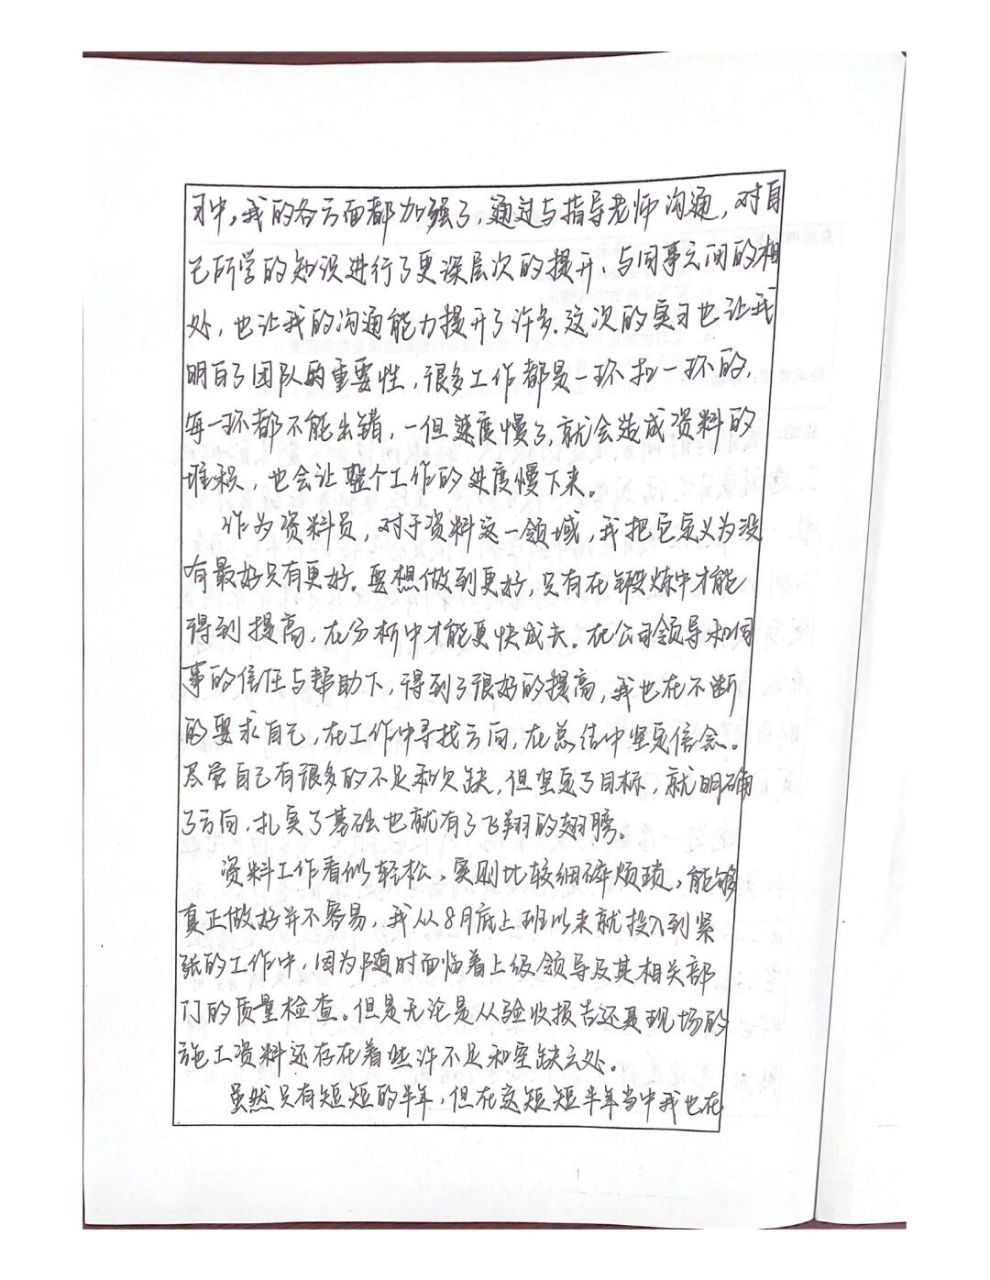 习中，我的各方面都加强了，通过与指导老师沟通，对自
己所学的知识进行了更深层次的提升、与同事之间的相
处，也让我的沟通能力提升了许多.这次的实习也让我
明白了团队的重要性，很多工作都是一环扣一环的，
每一环都不能出错，一但速度慢了，就会造成资料的
堆积，也会让整个工作的进度慢下来。
作为资料员，对于资料这一领域，我把它定义为没
有最好只有更好.要想做到更好，只有在锻炼中才能
得到提高，在分析中才能更快成夫。在公司领导和同
事的信任与帮助下，得到了很好的提高，我也在不断
的要求自己，在工作中寻找方向，在总结中坚定信念。
尽管自己有很多的不足和欠缺，但坚定了目标，就明确
了方向，扎实了基础也就有了飞翔的翅膀。
资料工作看似轻松，实则比较细碎烦琐，能够
真正做好并不容易，我从8月底上班以来就投入到紧
张的工作中，因为随时面临着上级领导及其相关部
门的质量检查。但是无论是从验收报告还是现场的
施工资料还存在着些许不足和空缺之处。
虽然只有短短的半年，但在这短短半年当中我也在